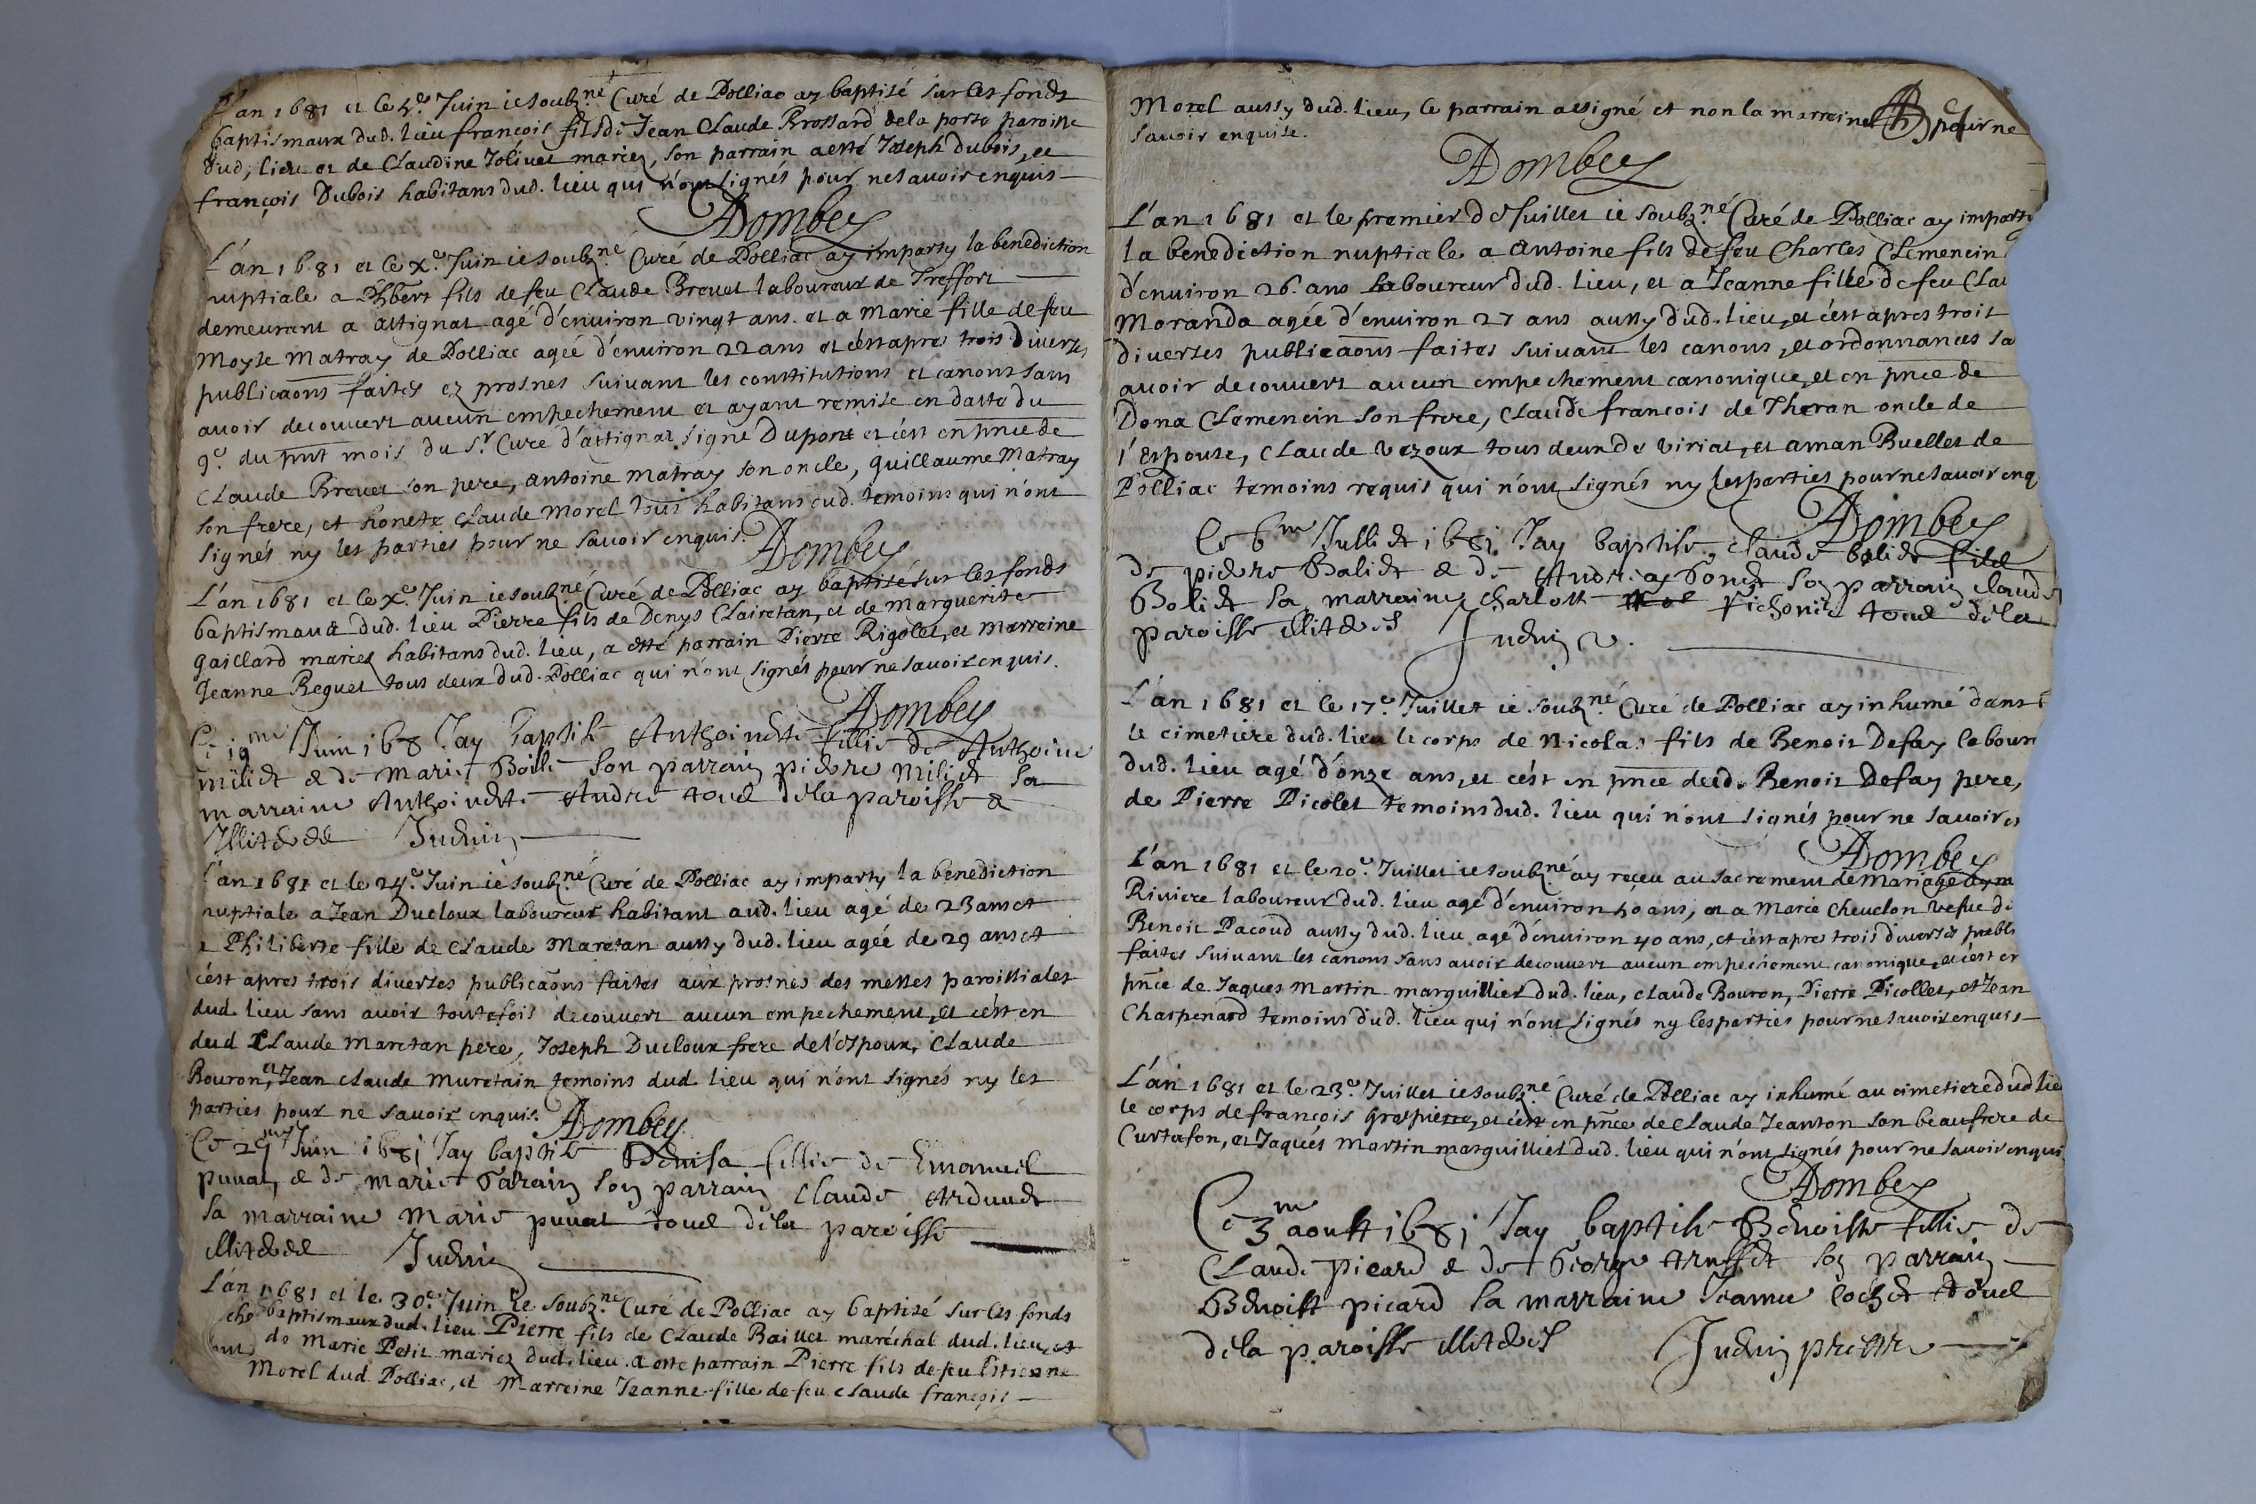 L'an 1681 et le 4.e Juin ie soubz.né Curé de Polliac ay baptisé sur les fonds
baptismaux dud. lieu françois fils de Jean Claude Brossard de la porte paroisse
dud, lieu et de Claudine Jolivet mariez, son parrain a esté Joseph Dubois, et
françois Dubois habitans dud. lieu qui n'ont signés pour ne savoir enquis
ADombey
L'an 1681 et le x.e Juin ie soubz.né Curé de Polliac ay imparty la benediction
nuptiale a Phbert fils de feu Claude Brevet laboureur de Treffort
demeurant a attignat agé d'environ vingt ans. et a Marie fille de feu
Moyse Matray de Polliac agée d'environ 22 ans et c'est apres trois diverses
publicaons faites ez prosnes suivant les constitutions et canons sans
avoir decouvert aucun empechement et ayant remise en datte du
9.e du pnt mois du S.r Curé d'attignat signé Dupont et c'est en pnce de
Claude Brevet son pere, antoine Matray son oncle, Guillaume Matray
son frere, et honete Claude Morel tous habitans dud. temoins qui n'ont
signés ny les parties pour ne savoir enquis.
ADombey
L'an 1681 et le x.e Juin ie soubz.né Curé de Polliac ay baptisé sur les fonds
baptismaux dud. lieu Pierre fils de Denys Clairetan, et de Marguerite
Gaillard mariez habitans dud. lieu, a esté parrain Pierre Rigolet, et Marreine
Jeanne Reguet tous deux dud. Polliac qui n'ont signés pour ne savoir enquis.
ADombey
Ce 19me Juin 168 Jay baptise Anthoinette fillie de Anthoine
miliet & de marie son parrain piere miliet sa
marraine Anthoinette Andre tous dela paroisse &
Illiteres Juenin
L'an 1681 et le 24.e Juin ie soubz.né Curé de Polliac ay imparty la benediction
nuptiale a Jean Ducloux laboureur habitant aud. lieu agé de 23 ans et
a Philiberte fille de Claude Maretan aussy dud. lieu agée de 29 ans et
c'est apres trois diverses publicaons faites aux prosnes des messes paroissiales
dud. lieu sans avoir toutefois decouvert aucun empechement, et c'est en
dud Claude Maretan pere, Joseph Ducloux frere de l'espoux, Claude
Bouron, et Jean claude Muretain temoins dud. lieu qui n'ont signés ny les
parties pour ne savoir enquis.
ADombey
Ce 29me Juin 1681 Jay baptise Denisa fillie de Emanuel
puvat, & de marie son parrain Claude
sa marraine Marie puvat tous dela paroisse
illiteres Juenin
L'an 1681 et le 30.e Juin ie soubz.né Curé de Polliac ay baptisé sur les fonds
baptismaux dud. lieu Pierre fils de Claude Baillet maréchal dud. lieu, et
de Marie Petit mariez dud. lieu. a esté parrain Pierre fils de feu Estienne
Morel dud. Polliac, et Marreine Jeanne fille de feu claude françois
Morel aussy dud. lieu, le parrain a signé et non la marreine pour ne
savoir enquise.
ADombey
L'an 1681 et le premier de Juillet ie soubz.né Curé de Polliac ay imparty
la benediction nuptiale a Antoine fils de feu Charles Clemencin
d'environ 26. ans laboureur dud. lieu, et a Jeanne fille de feu Clau
Moranda agée d'environ 27 ans aussy dud. lieu, et c'est apres trois
diverses publicaons faites suivant les canons, et ordonnances sa
avoir decouvert aucun empechement canonique, et en pnce de
Dona Clemencin son frere, Claude francois de Theran oncle de
l'espouse, Claude Vezoux tous deux de viriat, et aman Buellet de
Polliac temoins requis qui n'ont signés ny les parties pour ne savoir enq
ADombey
Ce 6me Julliet 1681 Jay baptise, claude Boliet fils
de piere Boliet & de Andrea son parrain claude
Boliet sa marraine charlott pichonie tous dela
paroisse illiteres Juenin v.
L'an 1681 et le 17.e Juillet ie soubz.né Curé de Polliac ay inhumé dans
le cimetiere dud. lieu le corps de Nicolas fils de Benoit Defay labour
dud. lieu agé d'onze ans, et c'est en pnce dud. Benoit Defay pere,
de Pierre Picolet temoins dud. lieu qui n'ont signés pour ne savoir e
ADombey
L'an 1681 et le 20.e Juillet ie soubz.né ay reçeu au sacrement de Mariage
Riviere laboureur dud. lieu agé d'environ 50 ans, et a Marie Cheuclon vefve de
Benoit Pacoud aussy dud. lieu agé d'environ 40 ans, et c'est apres trois diverses publi
faites suivant les canons sans avoir decouvert aucun empechement canonique, et c'est en
pnce de Jaques Martin marguillier dud. lieu, claude Bouron, Pierre Picollet, et Jean
Charpenard temoins dud. lieu qui n'ont signés ny les parties pour ne savoir enquis
L'an 1681 et le 23.e Juillet ie soubz.né Curé de Polliac ay inhumé au cimetiere dud lieu
le corps de françois Grospierre, et c'est en pnce de Claude Jeanton son beaufrere de
Curtafon, et Jaques Martin marguillier dud. lieu qui n'ont signés pour ne savoir enqui
ADombey
Ce 3me aoust 1681 Jay baptise Benoiste fillie de
Claude picard & de son parrain
Benoist picard sa marraine Jeanne cochet tous
dela paroisse illiteres Juenin prettre